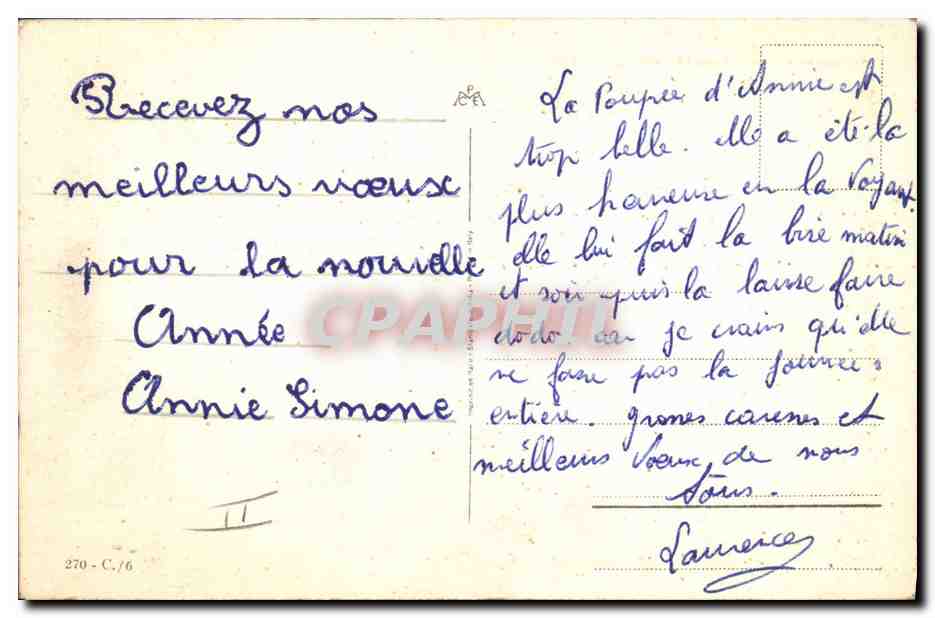 Recevez nos
meilleurs vœux
pour la nouvelle
Année
Annie Simone
II
270 - C./6
CPAPHIL
La Poupée d'Annie est
trop belle. Elle a été la
plus heureuse en la voyant.
elle lui fait la bise matin
et soir puis la laisse faire
dodo car je crains qu'elle
ne fasse pas la journée
entière. grosses caresses et
meilleurs Vœux de nous
Tous.
Laurence